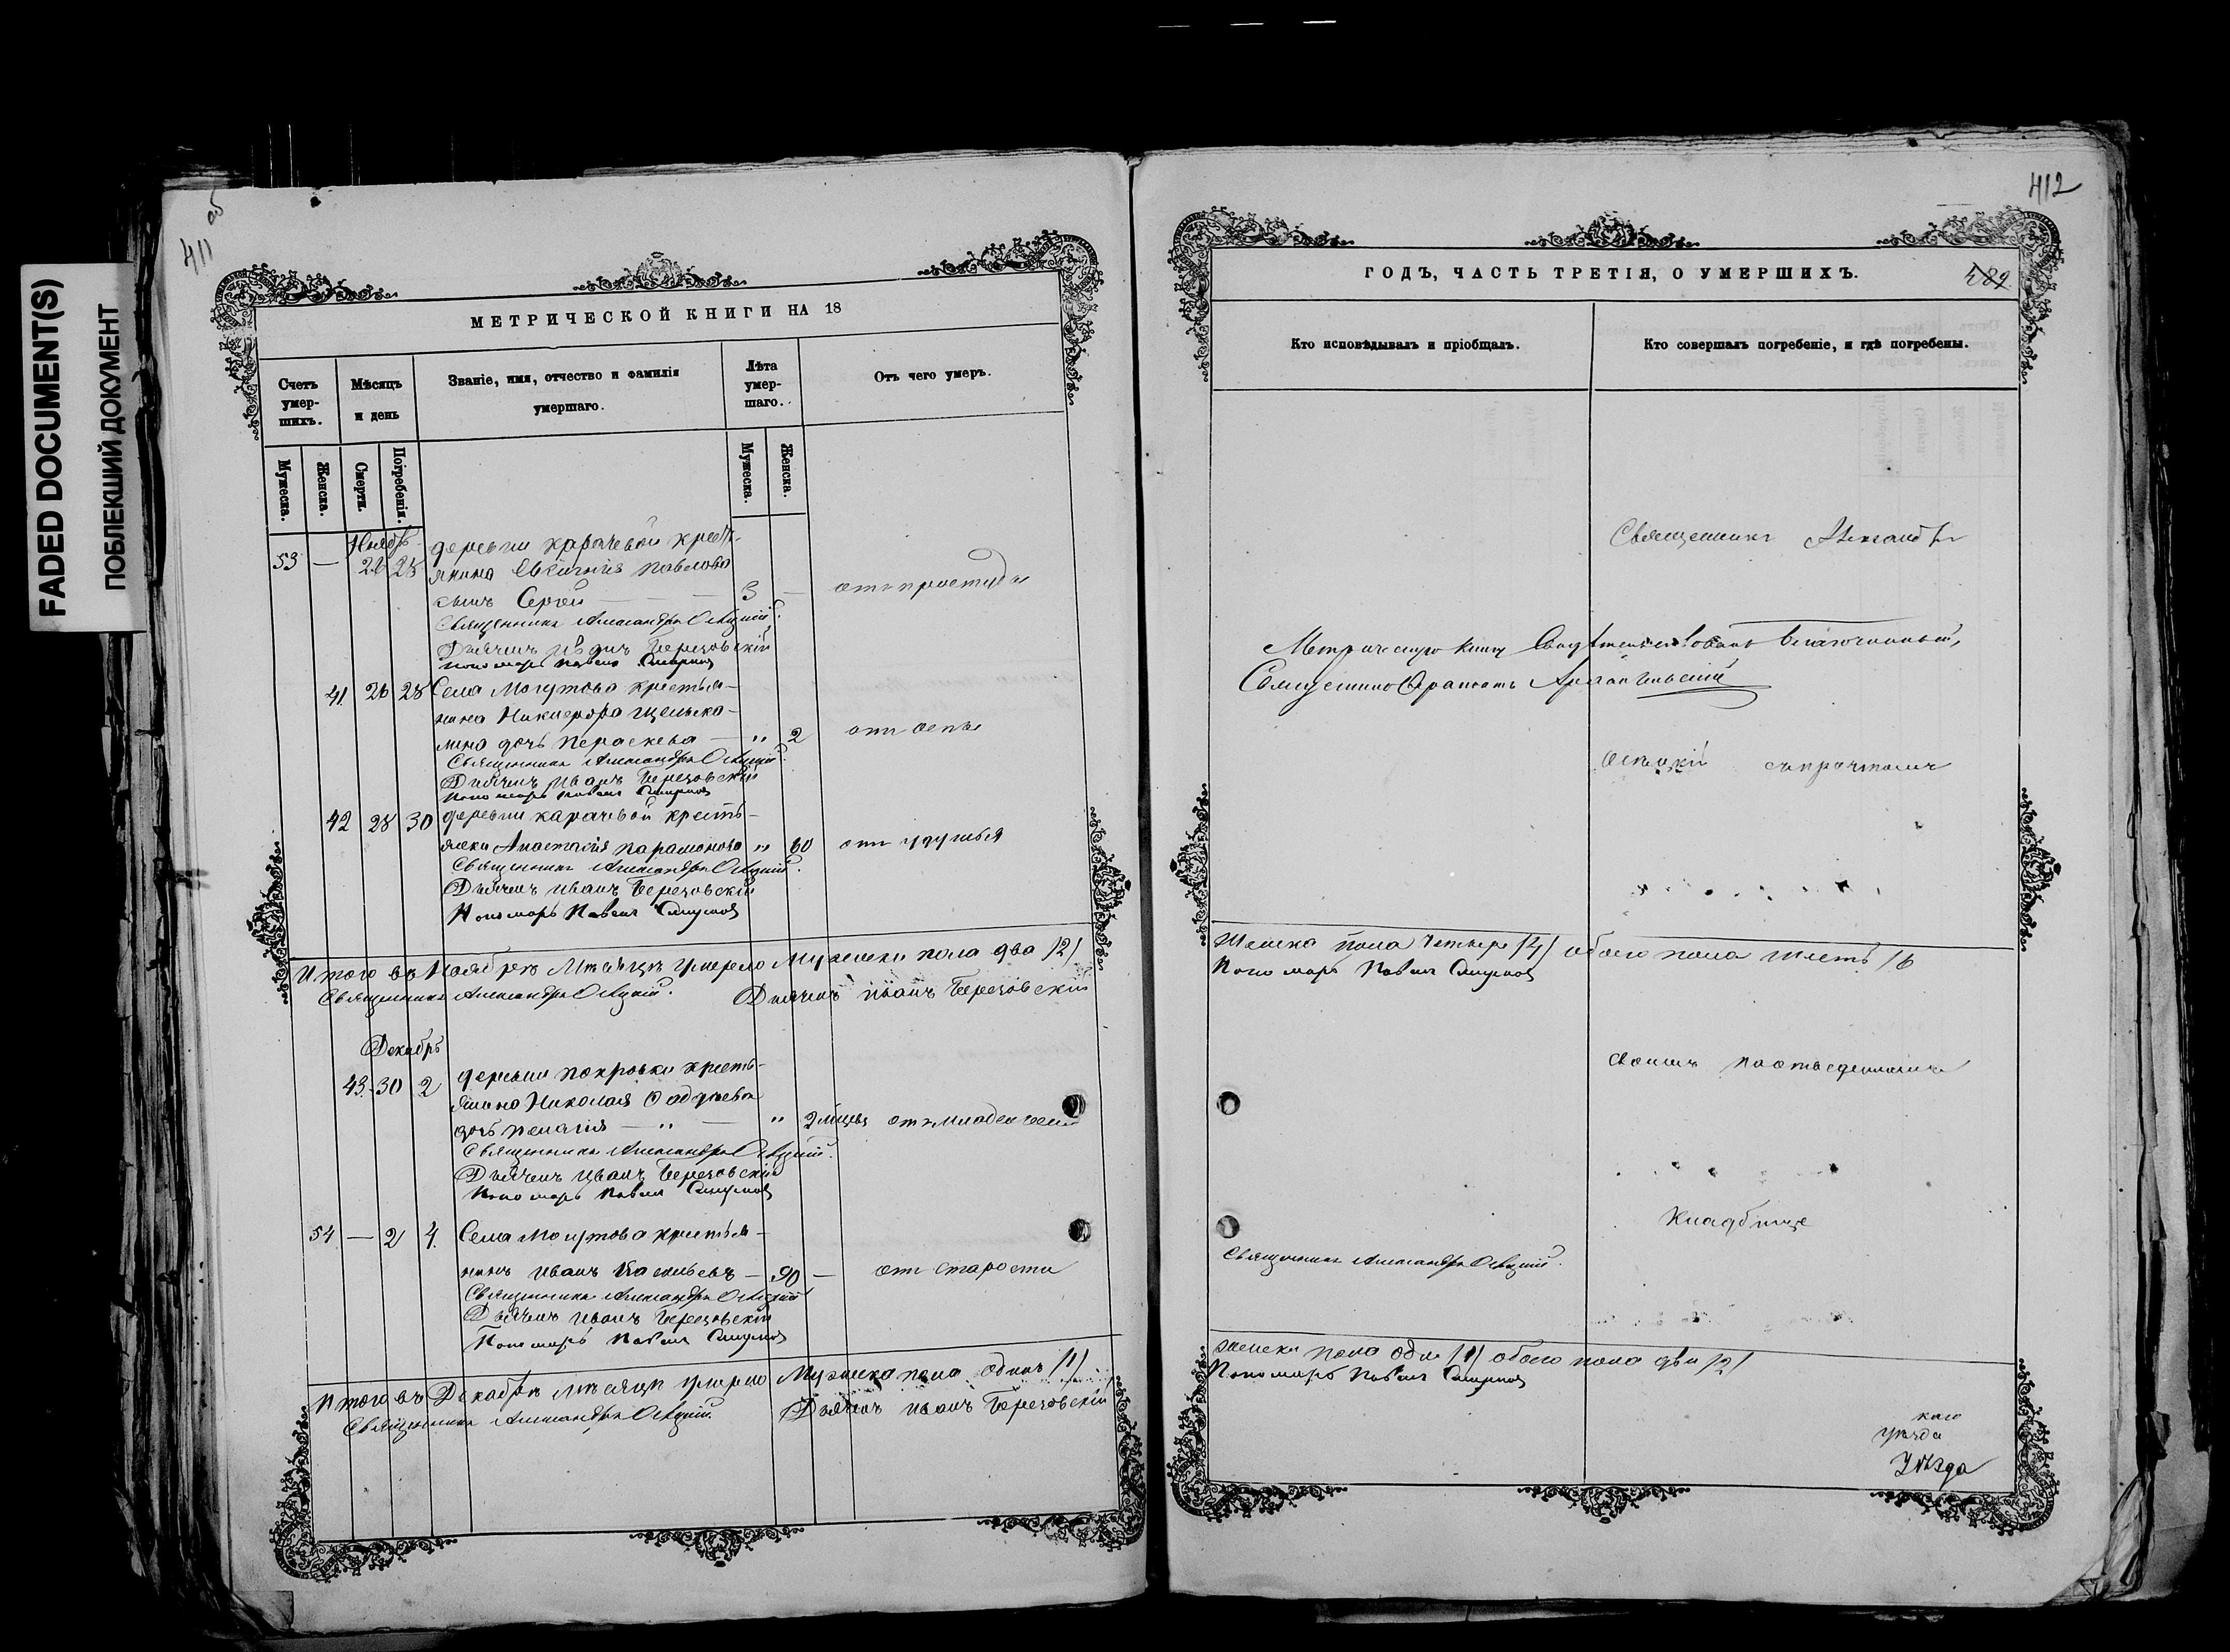 FADED DOCUMENT(S)
ПОБЛЕКШИЙ ДОКУМЕНТ
411 об
МЕТРИЧЕСКОЙ КНИГИ НА 18
Счетъ умер-шихъ.
Мѣсяцъ и день
Званіе, имя, отчество и фамилія умершаго.
Лѣта умер-шаго.
Отъ чего умеръ.
Мужеска.
Женска.
Смерти.
Погребенія.
Мужеска.
Женска.
Ноябрь
деревни Карачевой крест-
53 — 26 28 янина Евгенія Павлова
сынъ Сергій — 3 — отъ простуды
Священникъ Александръ
Дьячекъ Иванъ Березовскій
Пономарь Павелъ Смирнов
41. 26 28 Села Могутова крестья-
нина Никифора
дочь Пераскева — " 2 отъ оспы
Священникъ Александръ
Дьячекъ Иванъ Березовскій
Пономарь Павелъ Смирнов
42 28 30 деревни Карачевой кресть-
янки Анастасія Парамонова " 60 отъ удушья
Священникъ Александръ
Дьячекъ Иванъ Березовскій
Пономарь Павелъ Смирнов
Итого въ Ноябрѣ Мѣсяцѣ умерло Мужеска пола два /2/
Священникъ Александръ
Дьячекъ Иванъ Березовскій
Декабрь
43. 30 2 деревни Покровки кресть-
янина Николая
дочь Пелагія — " — " 2 мѣсяц отъ младенческ
Священникъ Александръ
Дьячекъ Иванъ Березовскій
Пономарь Павелъ Смирнов
54 — 2 4. Села Могутова крестья-
нинъ Иванъ Васильевъ — 90 — отъ старости
Священникъ Александръ
Дьячекъ Иванъ Березовскій
Пономарь Павелъ Смирнов
Итого въ Декабрѣ мѣсяцѣ умерло Мужеска пола одинъ /1/
Священникъ Александръ
Дьячекъ Иванъ Березовскій
412
ГОДЪ, ЧАСТЬ ТРЕТІЯ, О УМЕРШИХЪ.
Кто исповѣдывалъ и пріобщалъ.
Кто совершалъ погребеніе, и гдѣ погребены.
Священникъ Александръ
Метрическую книгу свидѣтельствовалъ благочинный,
Священникъ
съ причтомъ
Женска пола четыре /4/ обоего пола шесть /6
Пономарь Павелъ Смирнов
своемъ
Кладбище
Священникъ Александръ
женска пола одна /1/ обоего пола два /2/
Пономарь Павелъ Смирнов
каго
уѣзда
Уѣзда